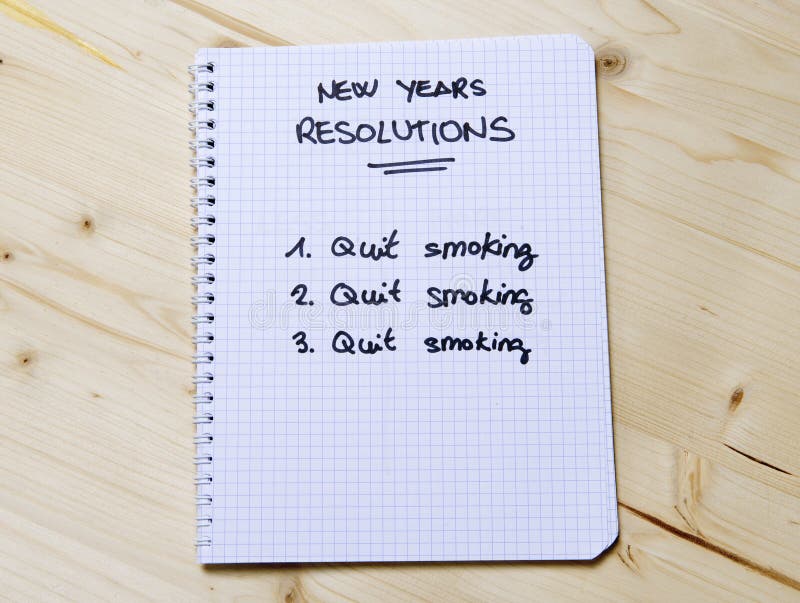 NEW YEARS
RESOLUTIONS
1. Quit smoking
2. Quit smoking
3. Quit smoking